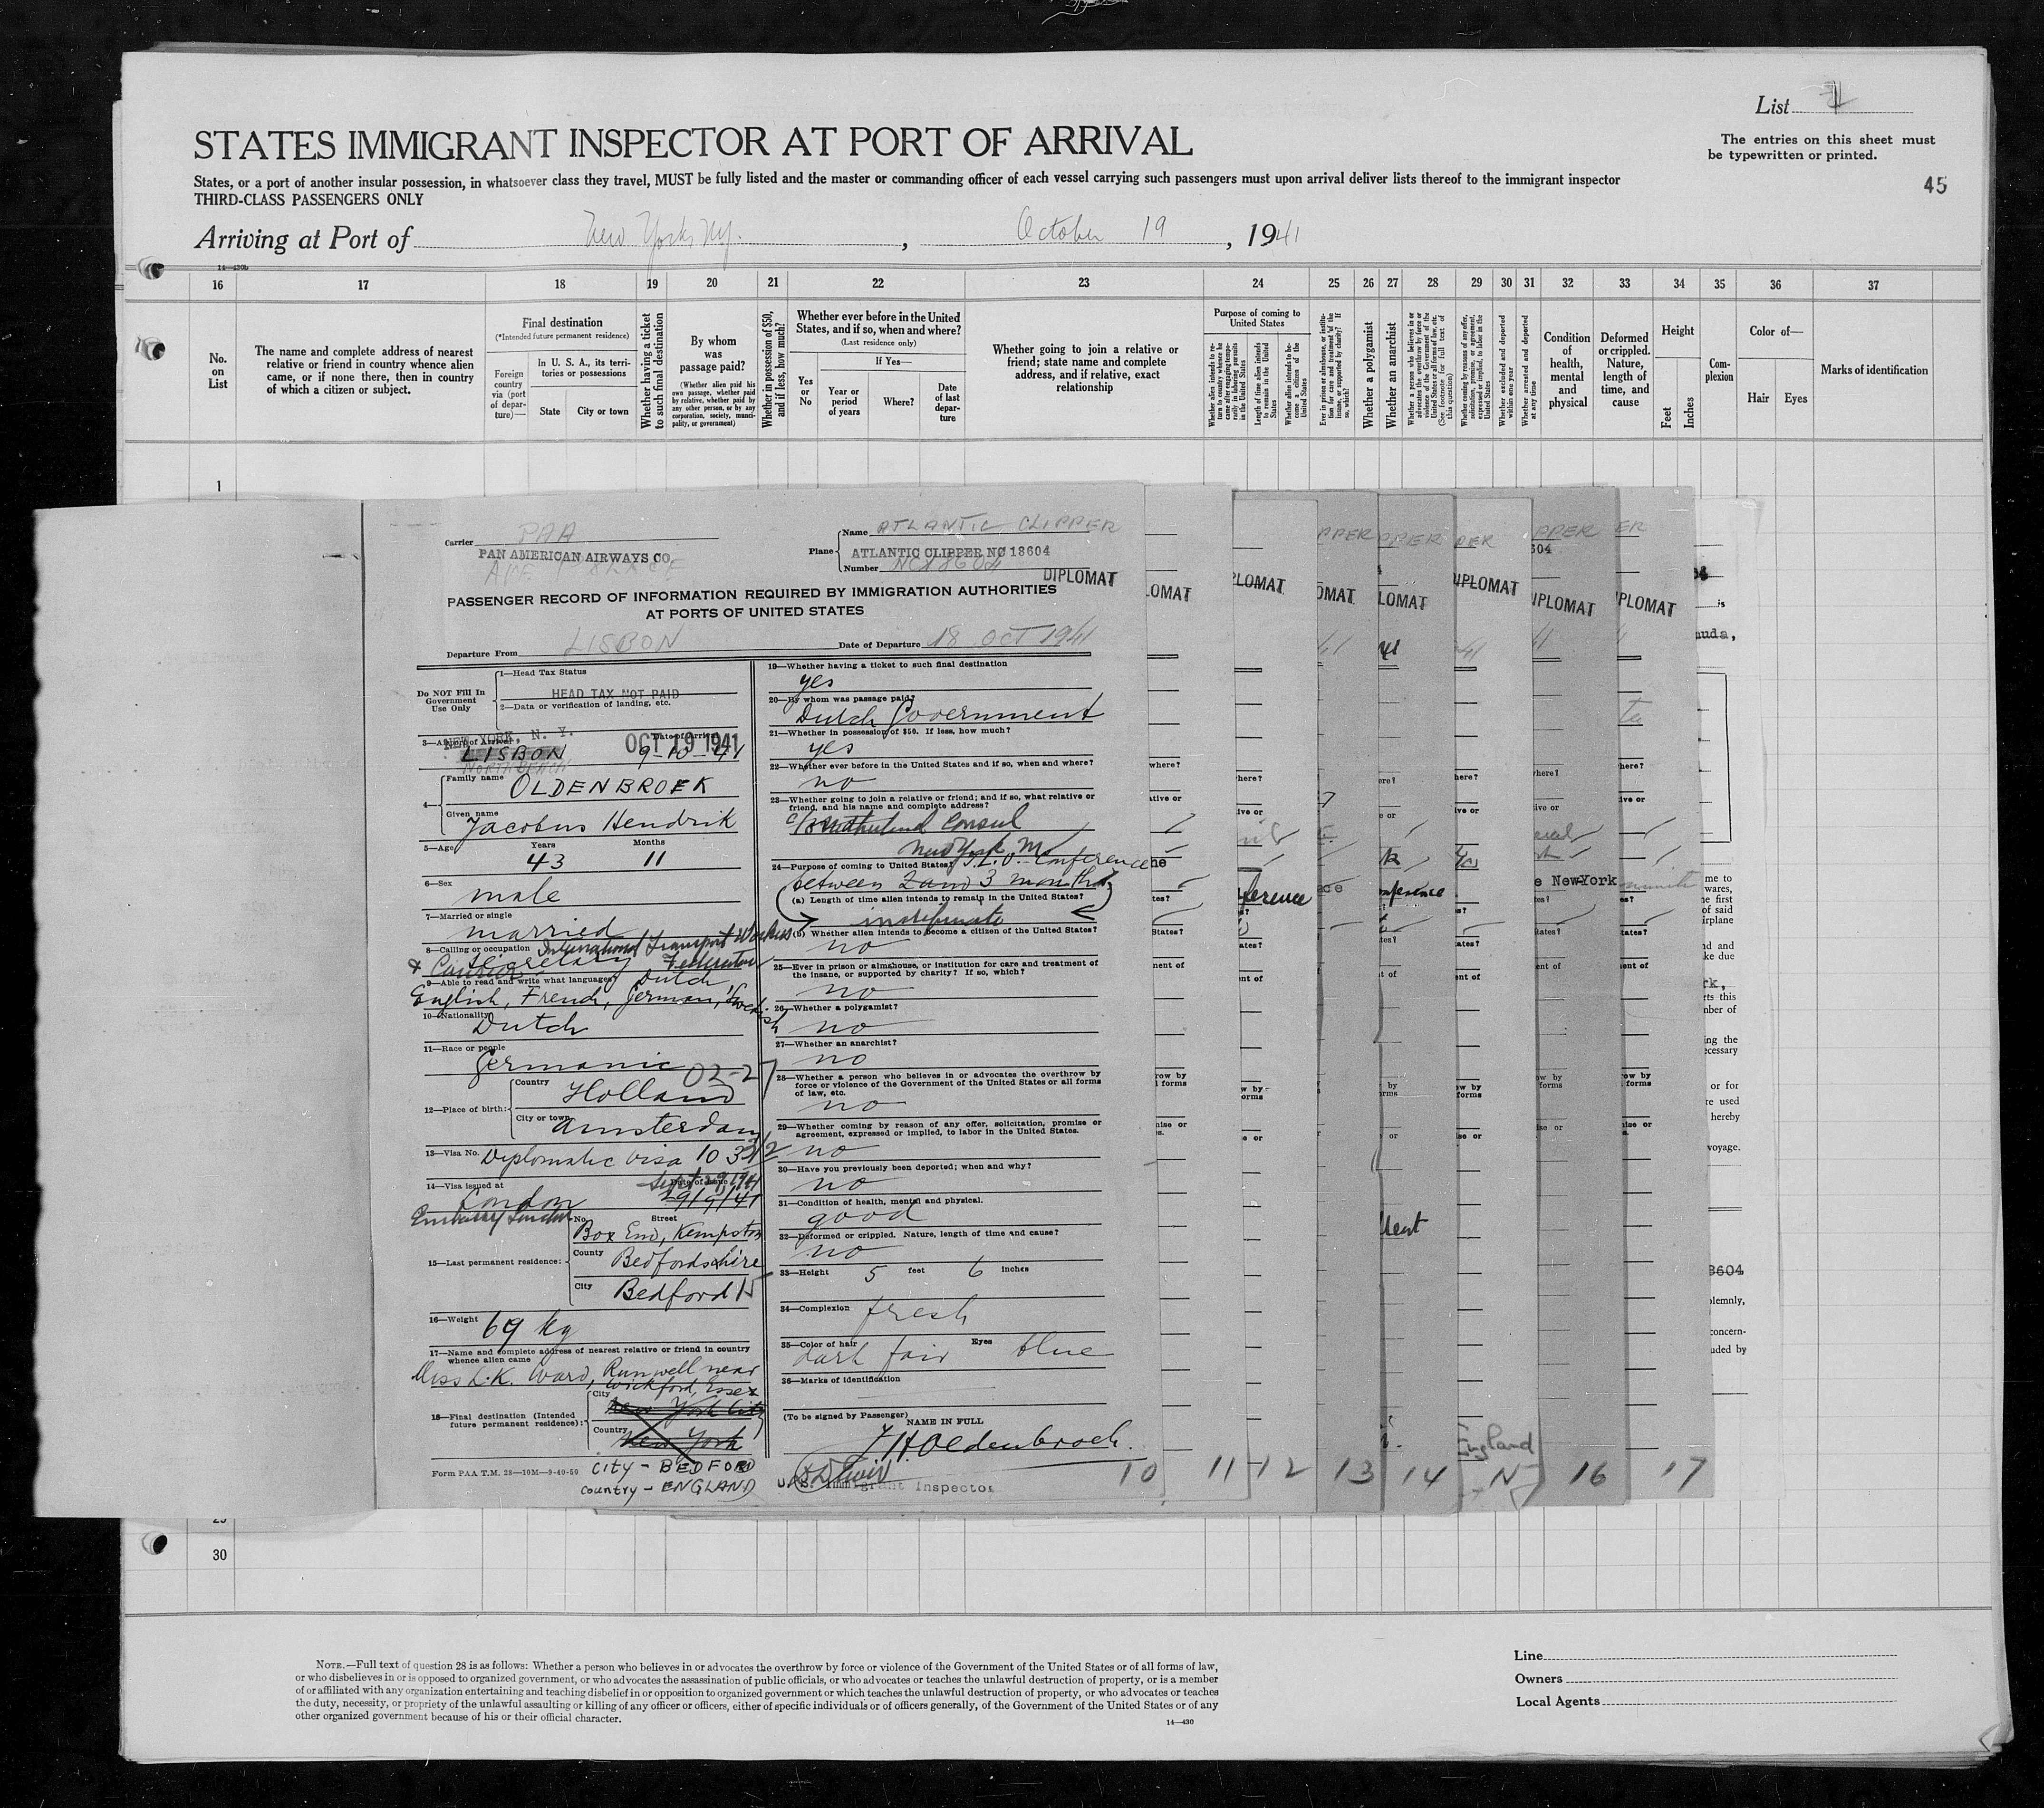 List
STATES IMMIGRANT INSPECTOR AT PORT OF ARRIVAL
The entries on this sheet must
be typewritten or printed.
States, or a port of another insular possession, in whatsoever class they travel, MUST be fully listed and the master or commanding officer of each vessel carrying such passengers must upon arrival deliver lists thereof to the immigrant inspector
THIRD-CLASS PASSENGERS ONLY
45
Arriving at Port of New York, Ny. , October 19 , 1941
14—430b
16 17 18 19 20 21 22 23 24 25 26 27 28 29 30 31 32 33 34 35 36 37
No. on List
The name and complete address of nearest relative or friend in country whence alien came, or if none there, then in country of which a citizen or subject.
Final destination
(*Intended future permanent residence)
Foreign country via (port of departure)—
In U. S. A., its territories or possessions
State City or town
Whether having a ticket to such final destination
By whom was passage paid?
(Whether alien paid his own passage, whether paid by relative, whether paid by any other person, or by any corporation, society, municipality, or government)
Whether in possession of $50, and if less, how much?
Whether ever before in the United States, and if so, when and where?
(Last residence only)
Yes or No
If Yes—
Year or period of years
Where?
Date of last departure
Whether going to join a relative or friend; state name and complete address, and if relative, exact relationship
Purpose of coming to United States
Whether alien intends to return to country whence he came after engaging temporarily in laboring pursuits in the United States
Length of time alien intends to remain in the United States
Whether alien intends to become a citizen of the United States
Ever in prison or almshouse, or institution for care and treatment of the insane, or supported by charity? If so, which?
Whether a polygamist
Whether an anarchist
Whether a person who believes in or advocates the overthrow by force or violence of the Government of the United States or all forms of law, etc. (See footnote for full text of this question)
Whether coming by reasons of any offer, solicitation, promise, or agreement, expressed or implied, to labor in the United States
Whether excluded and deported within one year
Whether arrested and deported at any time
Condition of health, mental and physical
Deformed or crippled. Nature, length of time, and cause
Height
Feet Inches
Complexion
Color of—
Hair Eyes
Marks of identification
1
Carrier PAA
PAN AMERICAN AIRWAYS CO.
Plane Name ATLANTIC CLIPPER
ATLANTIC CLIPPER NO 18604
Number NC18604
DIPLOMAT
PASSENGER RECORD OF INFORMATION REQUIRED BY IMMIGRATION AUTHORITIES
AT PORTS OF UNITED STATES
Departure From LISBON Date of Departure 18 OCT 1941
Do NOT Fill In Government Use Only
1—Head Tax Status
HEAD TAX NOT PAID
2—Data or verification of landing, etc.
NEW YORK, N. Y.
3—Airport of Arrival LISBON Date of Arrival 9-10-41
OCT 19 1941
NORTH BEACH
4— Family name OLDENBROEK
Given name Jacobus Hendrik
5—Age Years 43 Months 11
6—Sex male
7—Married or single married
8—Calling or occupation International Transport Workers Federation
Secretary
& Courier
9—Able to read and write what languages Dutch
English, French, German, Swedish
10—Nationality Dutch
11—Race or people Germanic
02-27
12—Place of birth: Country Holland
City or town Amsterdam
13—Visa No. Diplomatic visa 10 3312
14—Visa issued at London Date of issue 29/9/41
Embassy London
15—Last permanent residence: No. Street Box End, Kempston
County Bedfordshire
City Bedford
16—Weight 69 kg
17—Name and complete address of nearest relative or friend in country whence alien came
Miss L.K. Ward, Runwell near
Wickford, Essex
18—Final destination (Intended future permanent residence): City New York City
Country New York
City - BEDFORD
Country - ENGLAND
Form PAA T.M. 28—10M—9-40-50
19—Whether having a ticket to such final destination
yes
20—By whom was passage paid?
Dutch Government
21—Whether in possession of $50. If less, how much?
yes
22—Whether ever before in the United States and if so, when and where?
no
23—Whether going to join a relative or friend; and if so, what relative or friend, and his name and complete address?
c/o Netherland Consul
New York
24—Purpose of coming to United States? I.L.O. Conference
between 2 and 3 months
(a) Length of time alien intends to remain in the United States?
indefinate
(b) Whether alien intends to become a citizen of the United States?
no
25—Ever in prison or almshouse, or institution for care and treatment of the insane, or supported by charity? If so, which?
no
26—Whether a polygamist?
no
27—Whether an anarchist?
no
28—Whether a person who believes in or advocates the overthrow by force or violence of the Government of the United States or all forms of law, etc.
no
29—Whether coming by reason of any offer, solicitation, promise or agreement, expressed or implied, to labor in the United States.
no
30—Have you previously been deported; when and why?
no
31—Condition of health, mental and physical.
good
32—Deformed or crippled. Nature, length of time and cause?
no
33—Height 5 feet 6 inches
34—Complexion fresh
35—Color of hair dark fair Eyes blue
36—Marks of identification
(To be signed by Passenger)
NAME IN FULL
J H Oldenbroek.
U. S. Immigrant Inspector
10 11 12 13 14 15 16 17
England
e NewYork
30
NOTE.—Full text of question 28 is as follows: Whether a person who believes in or advocates the overthrow by force or violence of the Government of the United States or of all forms of law,
or who disbelieves in or is opposed to organized government, or who advocates the assassination of public officials, or who advocates or teaches the unlawful destruction of property, or is a member
of or affiliated with any organization entertaining and teaching disbelief in or opposition to organized government or which teaches the unlawful destruction of property, or who advocates or teaches
the duty, necessity, or propriety of the unlawful assaulting or killing of any officer or officers, either of specific individuals or of officers generally, of the Government of the United States or of any
other organized government because of his or their official character.
14—430
Line
Owners
Local Agents